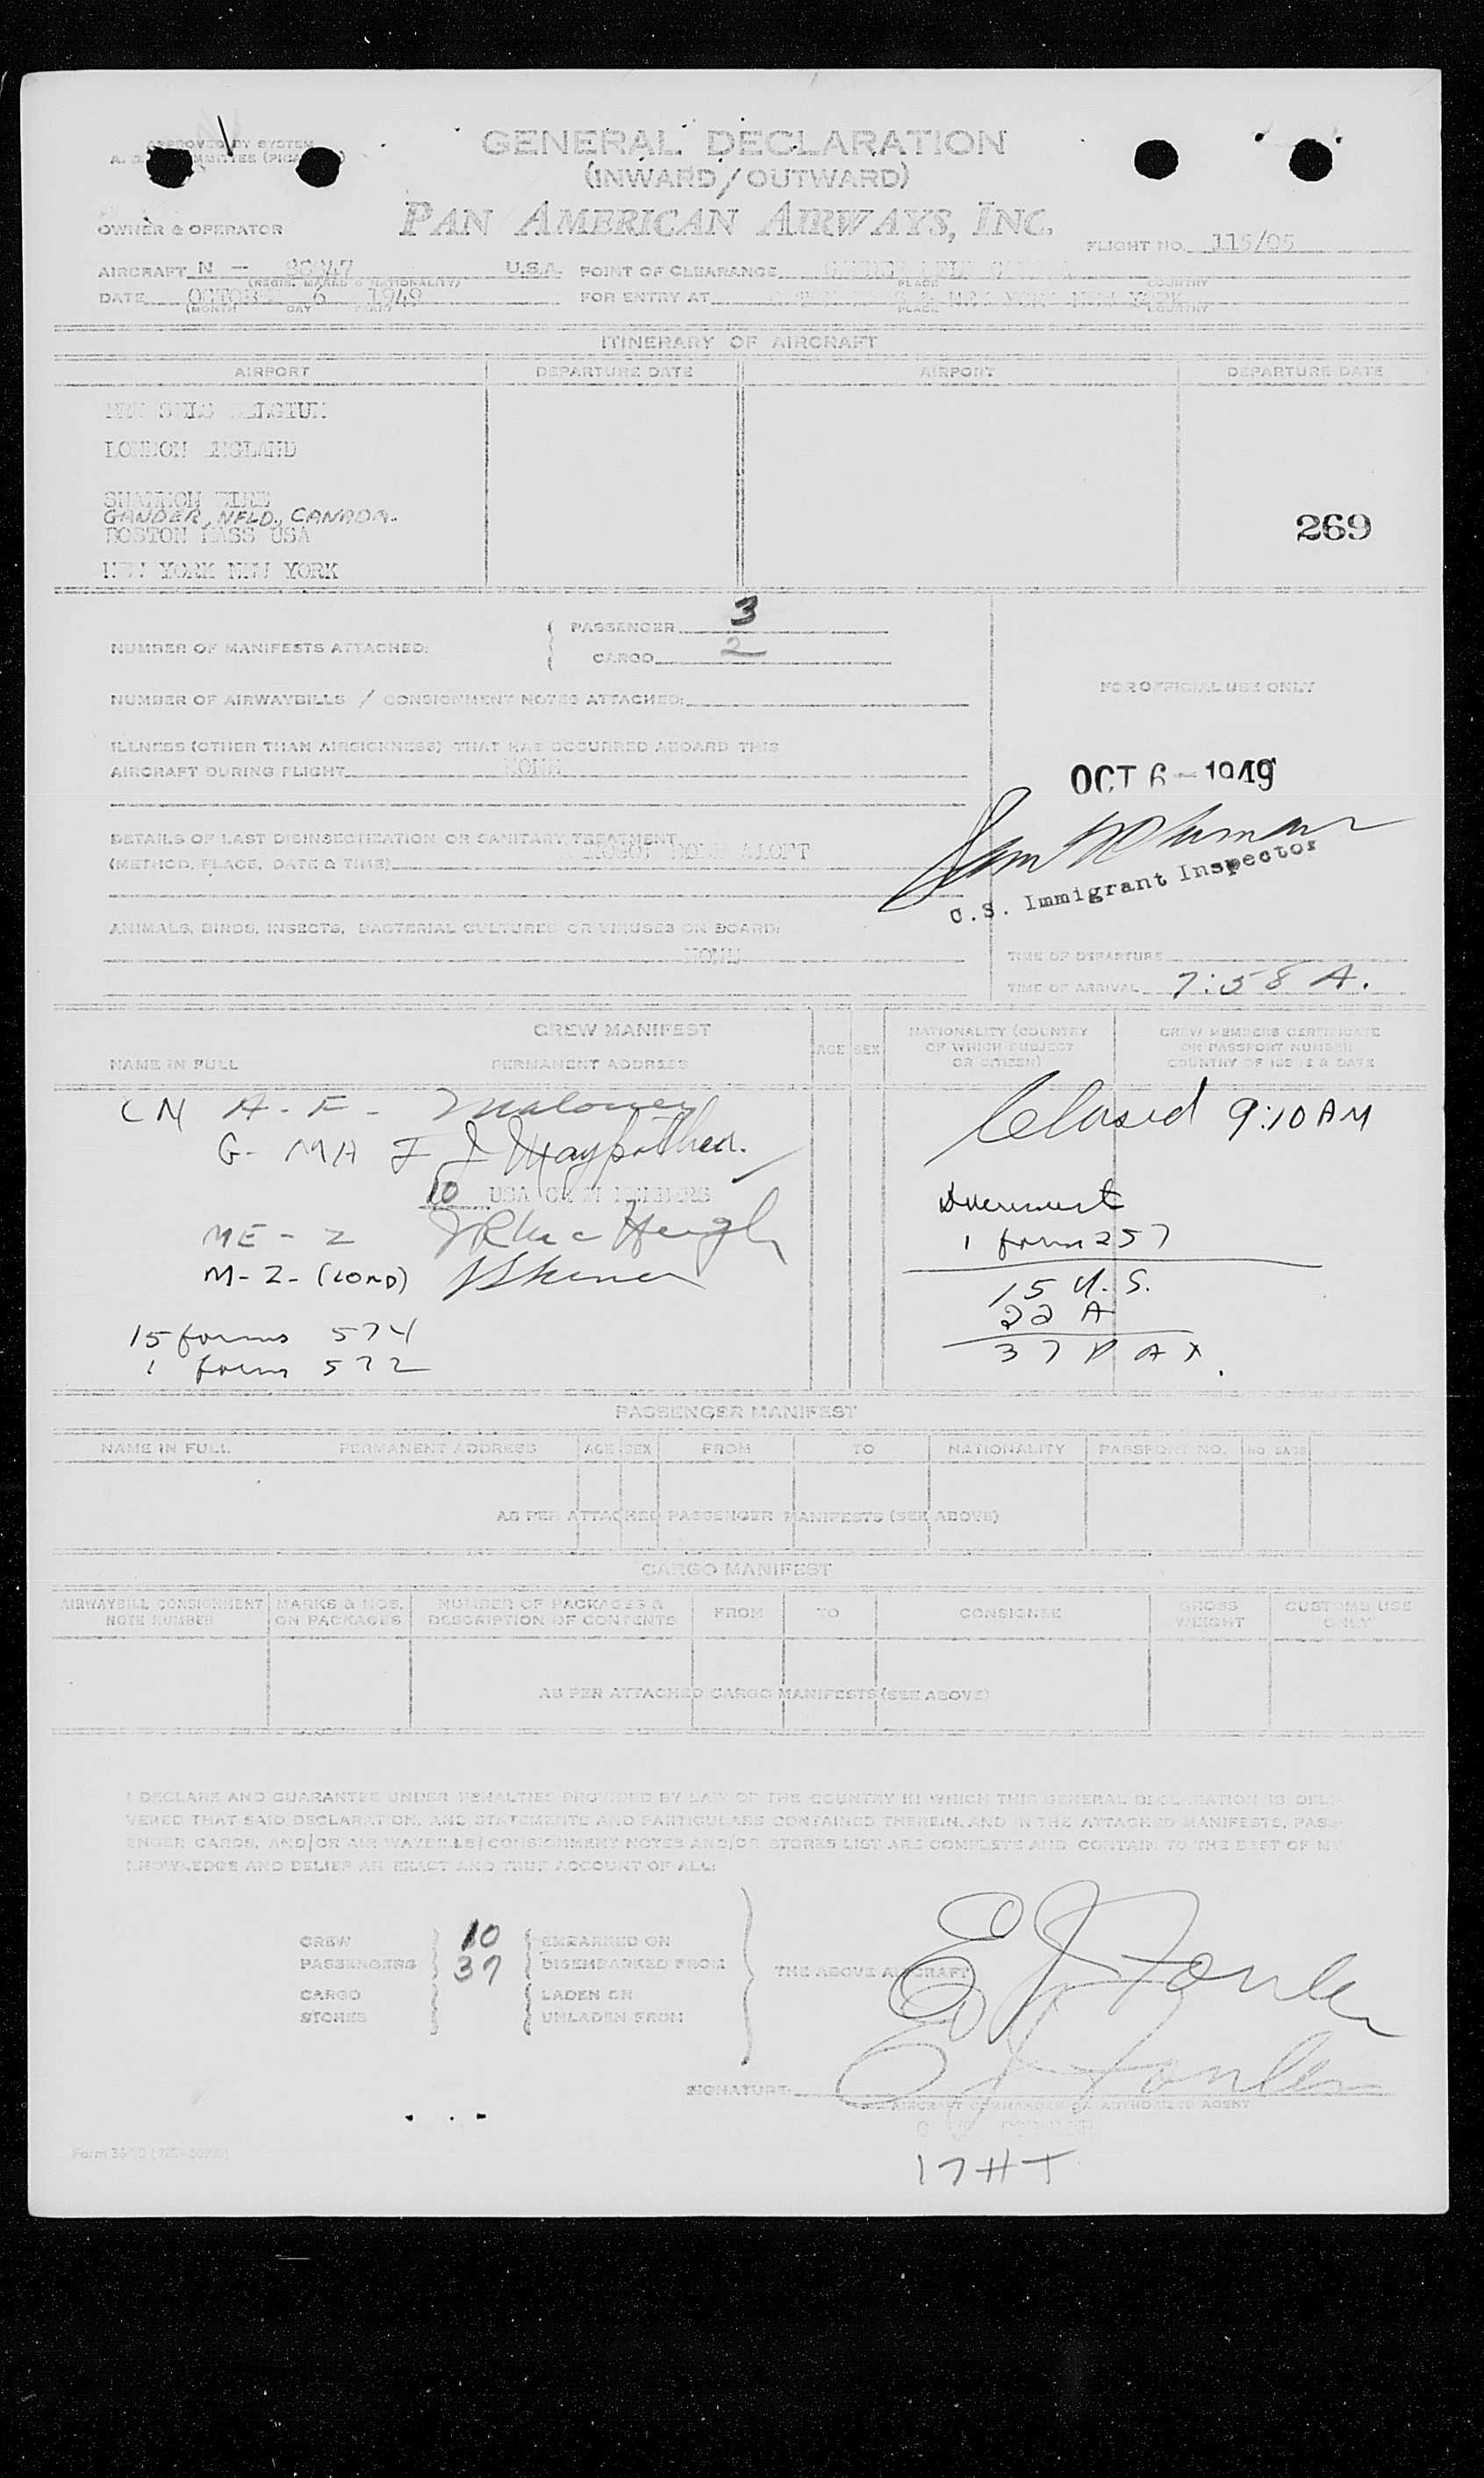 GENERAL DECLARATION
(INWARD/OUTWARD)
OWNER & OPERATOR PAN AMERICAN AIRWAYS, INC. FLIGHT NO. 115/05
AIRCRAFT N - U.S.A. POINT OF CLEARANCE
(REGIS. MARKS & NATIONALITY) PLACE COUNTRY
DATE OCTOBER 6 1949 FOR ENTRY AT NEW YORK NEW YORK
(MONTH DAY YEAR) PLACE COUNTRY
ITINERARY OF AIRCRAFT
AIRPORT DEPARTURE DATE AIRPORT DEPARTURE DATE
BRUSSELS BELGIUM
LONDON ENGLAND
SHANNON EIRE
GANDER, NFLD., CANADA.
BOSTON MASS USA
269
NEW YORK NEW YORK
NUMBER OF MANIFESTS ATTACHED: PASSENGER 3
CARGO 2
NUMBER OF AIRWAYBILLS / CONSIGNMENT NOTES ATTACHED:
FOR OFFICIAL USE ONLY
ILLNESS (OTHER THAN AIRSICKNESS) THAT HAS OCCURRED ABOARD THIS
AIRCRAFT DURING FLIGHT NONE
OCT 6 - 1949
DETAILS OF LAST DISINSECTIZATION OR SANITARY TREATMENT
(METHOD, PLACE, DATE & TIME) ALOFT
U.S. Immigrant Inspector
ANIMALS, BIRDS, INSECTS, BACTERIAL CULTURES OR VIRUSES ON BOARD:
NONE
TIME OF DEPARTURE
TIME OF ARRIVAL 7:58 A.
CREW MANIFEST
NAME IN FULL PERMANENT ADDRESS AGE SEX NATIONALITY (COUNTRY OF WHICH SUBJECT OR CITIZEN) CREW MEMBERS CERTIFICATE OR PASSPORT NUMBER COUNTRY OF ISSUE & DATE
CM A. F. Maloney
Closed 9:10 AM
G- MA F J Maypother.
10 USA CREW MEMBERS
Document
ME - 2
1 form 257
M-2-(LOND)
15 U.S.
22 A
15 forms 574
37 PAX.
1 form 572
PASSENGER MANIFEST
NAME IN FULL PERMANENT ADDRESS AGE SEX FROM TO NATIONALITY PASSPORT NO. NO. BAGS
AS PER ATTACHED PASSENGER MANIFESTS (SEE ABOVE)
CARGO MANIFEST
AIRWAYBILL CONSIGNMENT NOTE NUMBER MARKS & NOS. ON PACKAGES NUMBER OF PACKAGES & DESCRIPTION OF CONTENTS FROM TO CONSIGNEE GROSS WEIGHT CUSTOMS USE ONLY
AS PER ATTACHED CARGO MANIFESTS (SEE ABOVE)
I DECLARE AND GUARANTEE UNDER PENALTIES PROVIDED BY LAW OF THE COUNTRY IN WHICH THIS GENERAL DECLARATION IS DELI-
VERED THAT SAID DECLARATION, AND STATEMENTS AND PARTICULARS CONTAINED THEREIN, AND IN THE ATTACHED MANIFESTS, PASS-
ENGER CARDS, AND/OR AIR WAYBILLS/CONSIGNMENT NOTES AND/OR STORES LIST ARE COMPLETE AND CONTAIN TO THE BEST OF MY
KNOWLEDGE AND BELIEF AN EXACT AND TRUE ACCOUNT OF ALL:
CREW 10 EMBARKED ON
PASSENGERS 37 DISEMBARKED FROM
THE ABOVE AIRCRAFT E J Fowler
CARGO LADEN ON
STORES UNLADEN FROM
SIGNATURE: E J Fowler
AIRCRAFT COMMANDER OR AUTHORIZED AGENT
17 HT